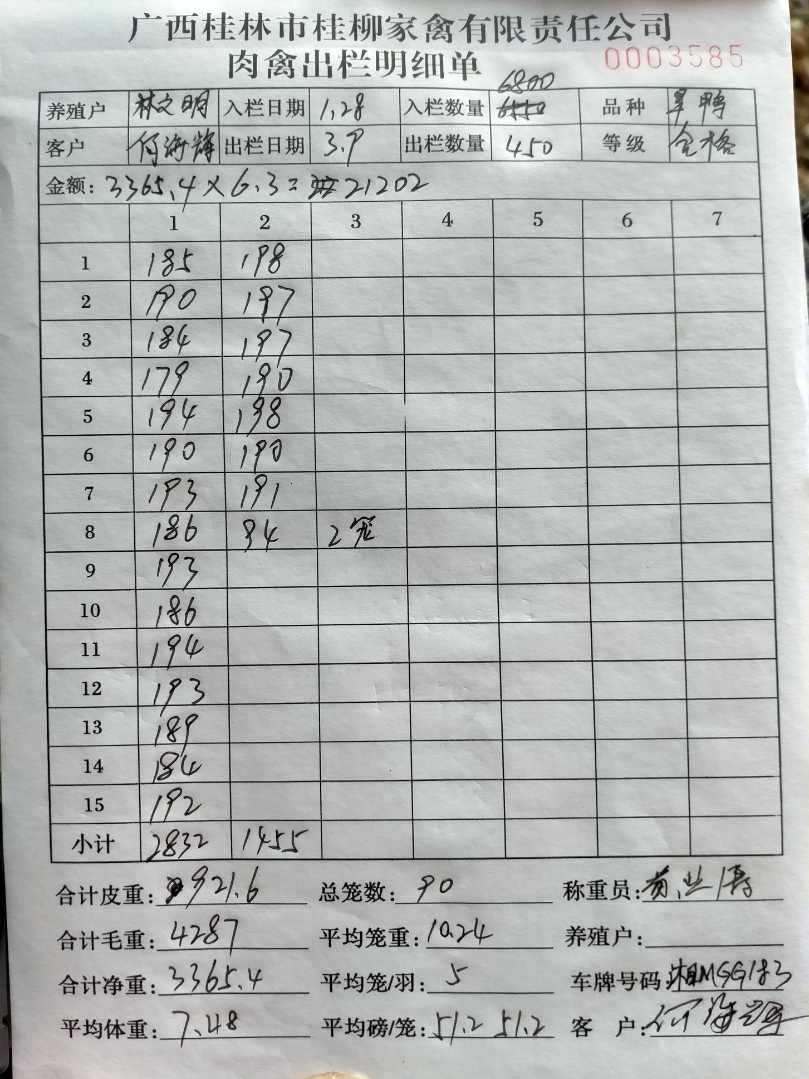 广西桂林市桂柳家禽有限责任公司
肉禽出栏明细单 0003585
6800
养殖户 林文明 入栏日期 1.28 入栏数量 6550 品种 旱鸭
客户 何海辉 出栏日期 3.9 出栏数量 450 等级 合格
金额: 3365.4×6.3= 21202
1 2 3 4 5 6 7
1 185 198
2 190 197
3 184 197
4 179 190
5 194 198
6 190 190
7 193 191
8 186 94 2笼
9 193
10 186
11 194
12 193
13 189
14 184
15 192
小计 2832 1455
合计皮重: 921.6 总笼数: 90 称重员: 黄业
合计毛重: 4287 平均笼重: 10.24 养殖户:
合计净重: 3365.4 平均笼/羽: 5 车牌号码: 湘MGG183
平均体重: 7.48 平均磅/笼: 51.2 51.2 客 户: 何海辉